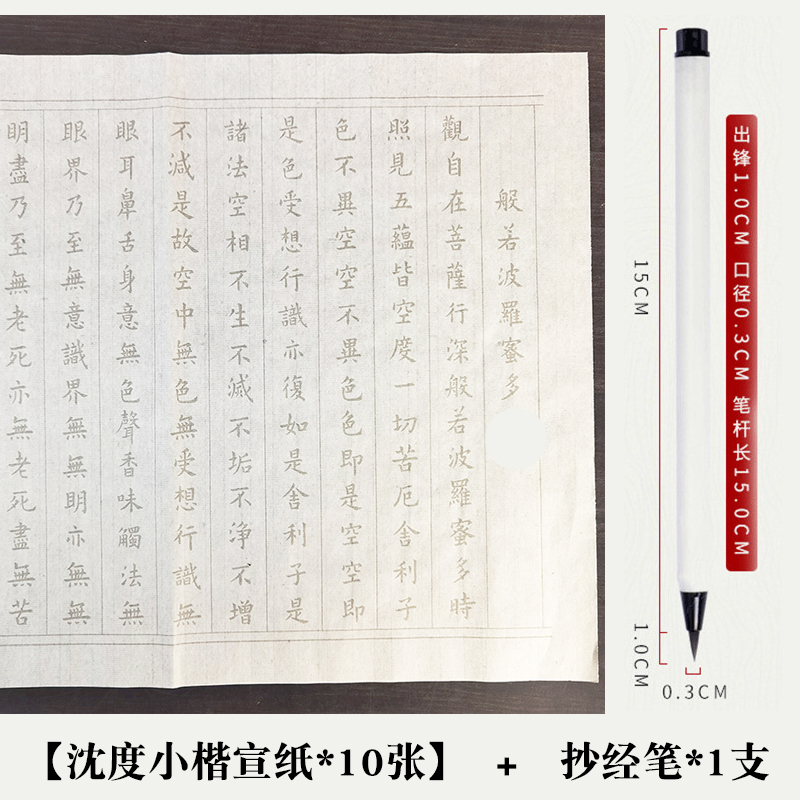 般若波羅蜜多
觀自在菩薩行深般若波羅蜜多時
照見五蘊皆空度一切苦厄舍利子
色不異空空不異色色即是空空即
是色受想行識亦復如是舍利子是
諸法空相不生不滅不垢不浄不增
不減是故空中無色無受想行識無
眼耳鼻舌身意無色聲香味觸法無
眼界乃至無意識界無無眀亦無無
眀盡乃至無老死亦無老死盡無苦
15CM
1.0CM
0.3CM
出锋1.0CM 口径0.3CM 笔杆长15.0CM
【沈度小楷宣纸*10张】 + 抄经笔*1支